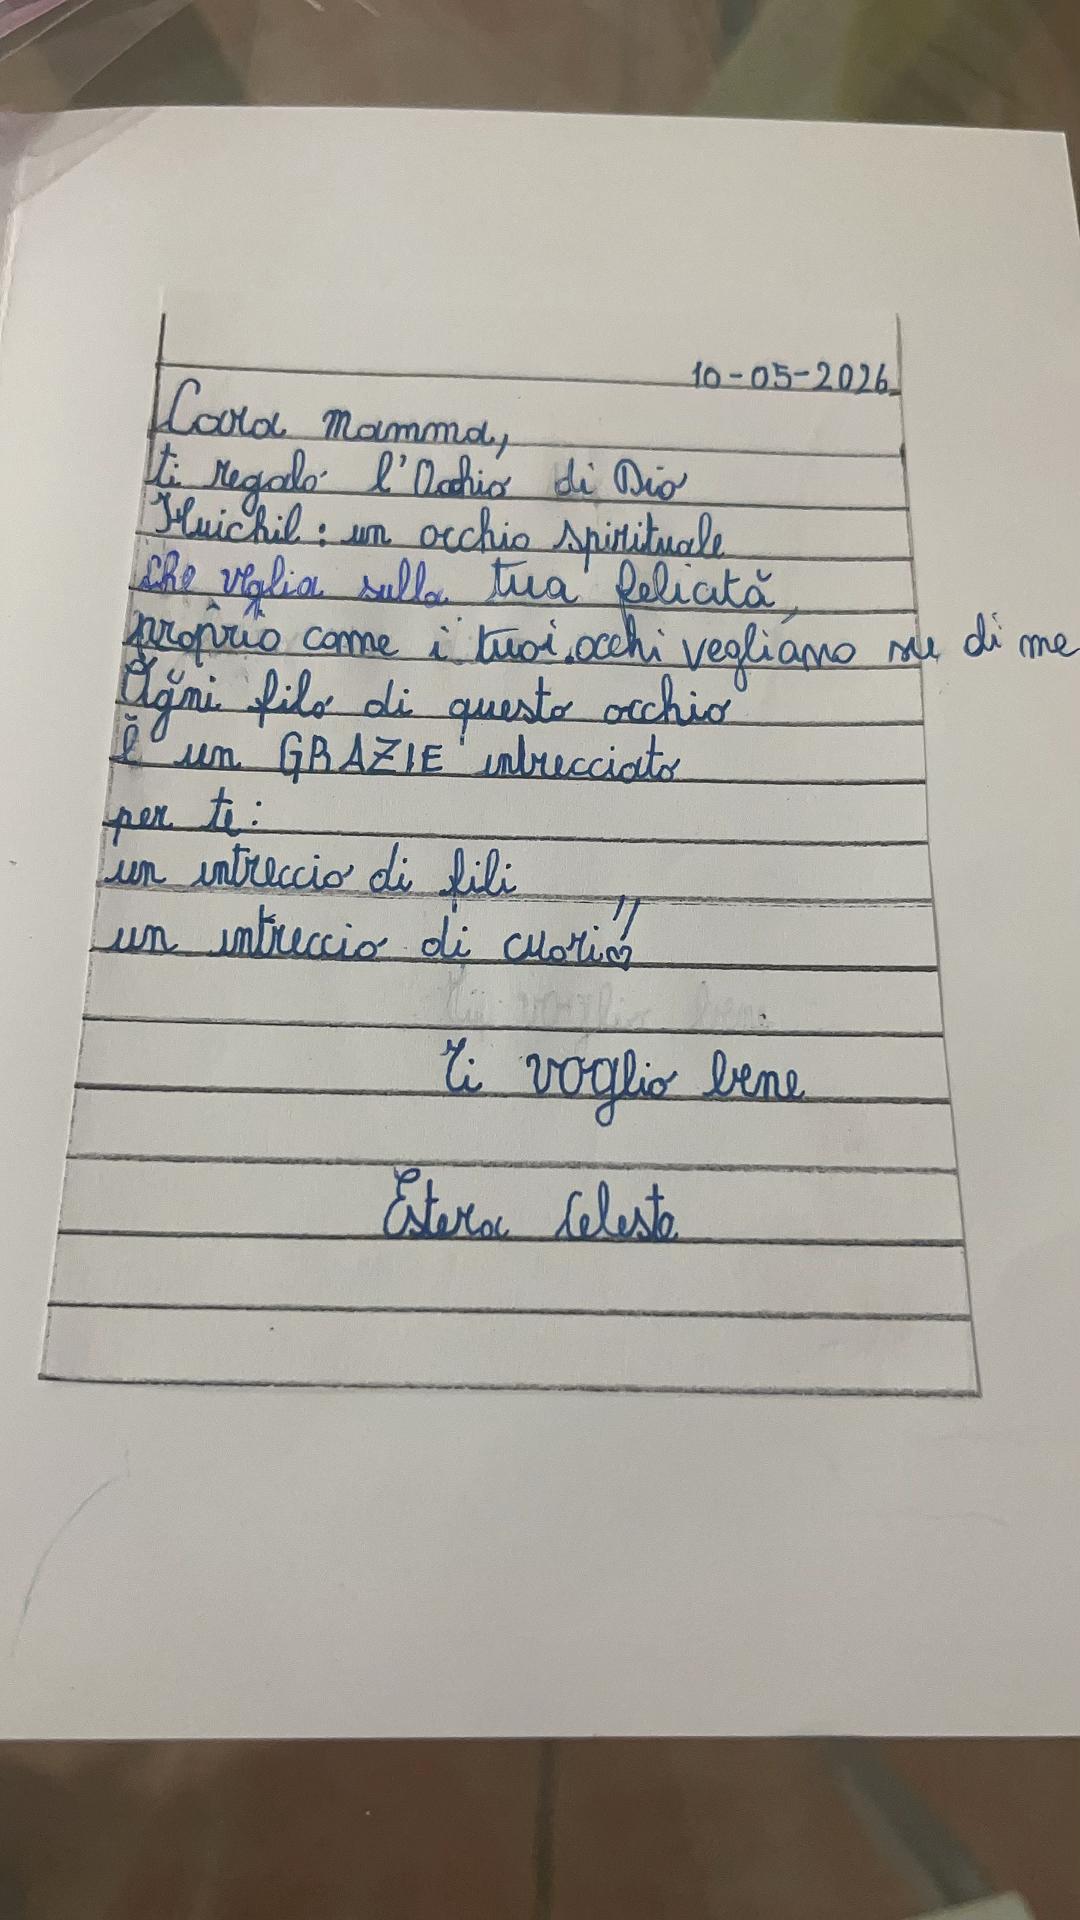 10-05-2026
Cara mamma,
ti regalo l'Occhio di Dio
Huichil: un occhio spirituale
che veglia sulla tua felicità,
proprio come i tuoi occhi vegliano su di me
Ogni filo di questo occhio
è un GRAZIE intrecciato
per te:
un intreccio di fili
un intreccio di cuori
Ti voglio bene
Estera Celeste